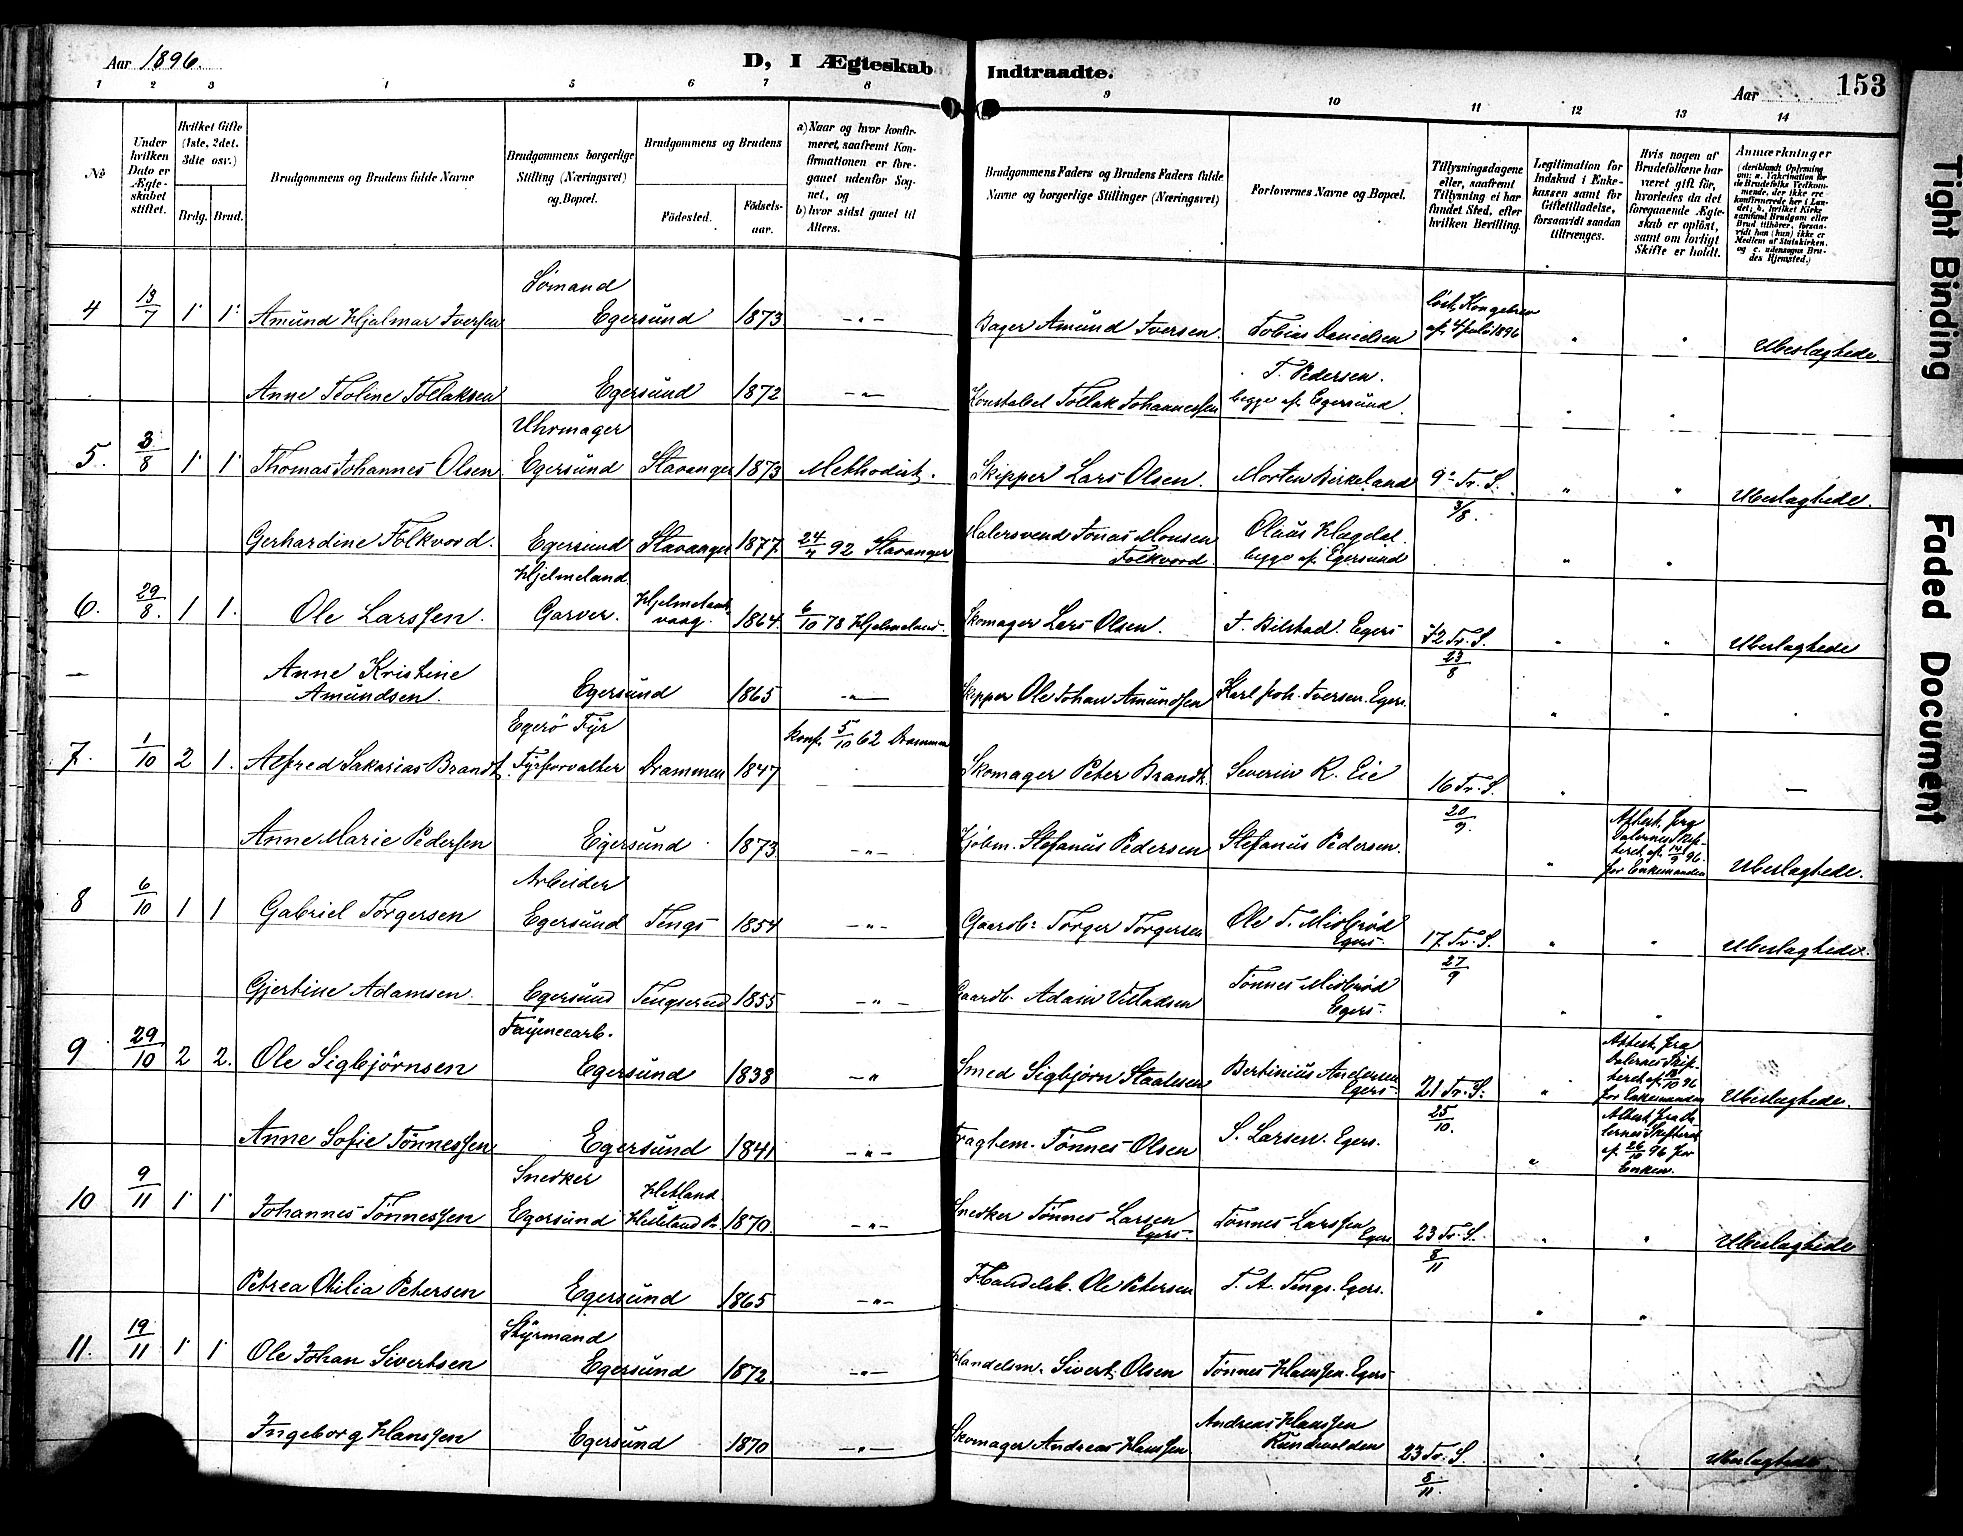 Aar 1896.
D, I Ægteskab Indtraadte.
Aar
153
1 2 3 4 5 6 7 8 9 10 11 12 13 14
No
Under hvilken Dato er Ægteskabet stiftet.
Hvilket Gifte (1ste, 2det, 3dte osv.)
Brdg. Brud.
Brudgommens og Brudens fulde Navne
Brudgommens borgerlige Stilling (Næringsvei) og Bopæl.
Brudgommens og Brudens
Fødested.
Fødselsaar.
a) Naar og hvor konfirmeret, saafremt Konfirmationen er foregaaet udenfor Sognet, og
b) hvor sidst gaaet til Alters.
Brudgommens Faders og Brudens Faders fulde Navne og borgerlige Stillinger (Næringsvei)
Forlovernes Navne og Bopæl.
Tillysningsdagene eller, saafremt Tillysning ei har fundet Sted, efter hvilken Bevilling.
Legitimation for Indskud i Enkekassen samt for Giftetilladelse, forsaavidt saadan tiltrænges.
Hvis nogen af Brudefolkene har været gift før, hvorledes da det foregaaende Ægteskab er opløst, samt om lovligt Skifte er holdt.
Anmærkninger
4 13/7 1 1 Amund Hjalmar Iversen Sømand Egersund 1873 —"— Bager Amund Iversen. Tobias Danielsen Kongebrev af 4 juli 1896 " " Ubeslægtede
Anne Teoline Tollaksen Egersund 1872 —"— Konstabel Tollak Johannessen T. Pedersen. begge af Egersund. " "
5. 3/8 1 1 Thomas Johannes Olsen Uhrmager Egersund Stavanger 1873 Methodist. Skipper Lars Olsen. Morten Birkeland 9 Tr. S. 3/8. " " Ubeslægtede.
Gerhardine Folkvord. Egersund Stavanger 1877 24/7 92 Stavanger Malersvend Jonas Monsen Folkvord. Olaus Hægdal. begge af Egersund " "
6. 29/8. 1 1. Ole Larssen. Hjelmeland Garver. Hjelmelandsvaag. 1864. 6/10 78 Hjelmeland. Skomager Lars Olsen. J. Bilstad. Egers 12 Tr. S. 23/8 " " Ubeslægtede
— Anne Kristine Amundsen. Egersund 1865 —"— Skipper Ole Johan Amundsen Karl Joh. Iversen. Egers. " "
7. 1/10 2 1. Alfred Sakarias Brandt. Egerø Fyr Fyrforvalter Drammen 1847 konf. 5/10 62 Drammen Skomager Peter Brandt. Severin K. Eie 16 Tr. S. 20/9. " —
Anne Marie Pedersen Egersund 1873. —"— Kjøbm. Stefanus Pedersen Stefanus Pedersen. " Attest fra Dalernes Skifteret af 14/9 96. for Enkemanden Ubeslægtede.
8 6/10 1 1 Gabriel Torgersen Arbeider Egersund Tengs 1854 —"— Gaardb. Torger Torgersen Ole T. Midbrød Egers. 17 Tr. S. 27/9 " " Ubeslægtede.
Gjertine Adamsen. Egersund Tengsereid 1855 —"— Gaardb. Adam Villadsen Tønnes Midbrød Egers. " "
9 29/10 2 2. Ole Sigbjørnsen Fayencearb. Egersund 1838 —" Smed Sigbjørn Staalesen Bertinius Andersen Egers. 21 Tr. S. 25/10. " Attest fra Dalernes Skifteret af /10 96 for Enkemanden Ubeslægtede.
Anne Sofie Tønnessen Egersund 1841 —"— Fragtem. Tønnes Olsen S. Larsen. Egers. " Attest fra Dalernes Skifteret af 26/10 96 for Enken.
10 9/11 1 1 Johannes Tønnessen Snedker Egersund Hetland 1870. —"— Snedker Tønnes Larsen Egers. Tønnes Larssen Egers 23 Tr. S. 8/11 " " Ubeslægtede
Petrea Otilia Petersen Egersund 1865 —"— Handelsb. Ole Petersen T. A. Tengs. Egers. " "
11. 19/11 1 1 Ole Johan Sivertsen Styrmand Egersund 1872. —"— Handelsm. Sivert Olsen Tønnes Hanssen. Egers
Ingeborg Hanssen Egersund 1870 —"— Skomager Andreas Hanssen Andreas Hanssen Rundvolden 23 Tr. S. 8/11. " " Ubeslægtede
Tight Binding
Faded Document